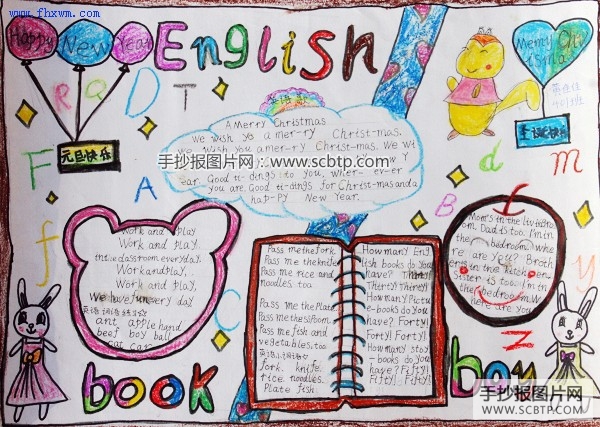 www.fhxwm.com
Happy New Year
English
Merry Chr
istmas
元旦快乐
圣诞快乐
F R Q D T
A
d m
B
f
C
y
z
英语
A Merry Christmas
We wish yo a mer-ry Christ-mas.
We wish you a mer-ry Christ-mas. We wi
手抄报图片网：www.scbtp.com
ear. Good ti-dings to you, wher-ev-er
you are. Good ti-dings for Christ-mas and a
hap-py New Year.
Work and play
Work and play,
in the classroom everyday.
Work and play,
Work and play,
We have fun every day
英语词语练习
ant apple hand
beef boy ball
cat car
Pass me the fork.
Pass me the knife.
Pass me rice and
noodles, too.
Pass me the Plate
Pass me the spoon
Pass me fish and
vegetables, too.
英语词语
fork. knife.
rice noodles.
Plate fish.
How many Eng
lish books do you
have? Thirty!
Thirty! Thirty!
How many Pictu
e-books do you
have? Forty!
Forty! Forty!
How many stoy
-books do you
have? Fifty!
Fifty! Fifty!
Mom's in the living
room. Dad is too. I'm in
the bedroom. Whe
re are you? Broth
er is in the kitchen.
Sister is too. I'm in
the bedroom. W
here are you?
book
boy
手抄报图片网
WWW.SCBTP.COM